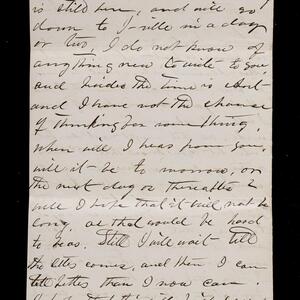 is still here, and will go
down to J-ville in a day
or two, I do not know of
anything new to write to you,
and besides the time is short
and I have not the chance
of thinking for something.
When will I hear from you,
will it be to morrow, or
the next day or thereafter
will I hope that it will not be
long, as that would be hard
to bear. Still I will wait till
the letter comes, and then I can
tell better than I now can.